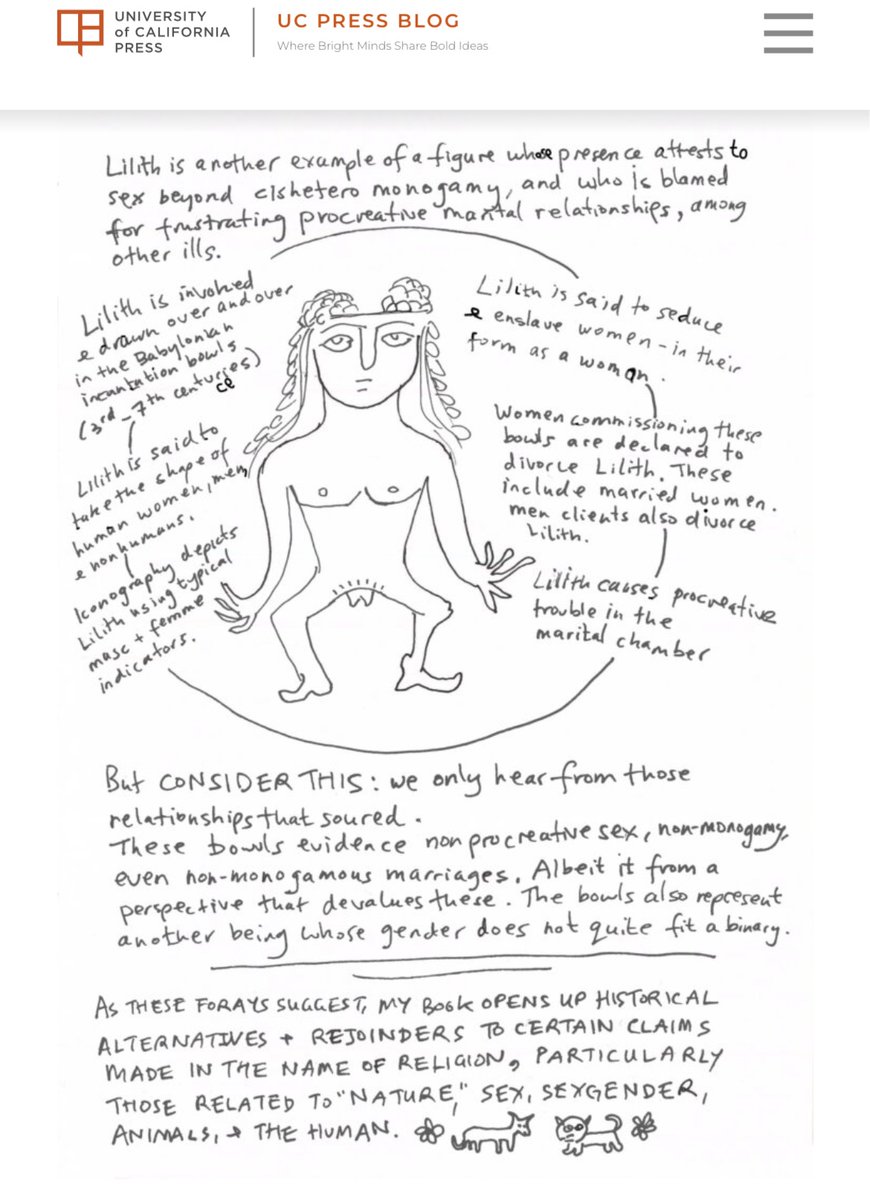 UNIVERSITY
of CALIFORNIA
PRESS
UC PRESS BLOG
Where Bright Minds Share Bold Ideas
Lilith is another example of a figure whose presence attests to
sex beyond cishetero monogamy, and who is blamed
for frustrating procreative marital relationships, among
other ills.
Lilith is invoked
& drawn over and over
in the Babylonian
incantation bowls
(3rd - 7th centuries)
ce
Lilith is said to
take the shape of
human women, men,
& nonhumans.
Iconography depicts
Lilith using typical
masc + femme
indicators.
Lilith is said to seduce
& enslave women - in their
form as a woman.
Women commissioning these
bowls are declared to
divorce Lilith. These
include married women.
men clients also divorce
Lilith.
Lilith causes procreative
trouble in the
marital chamber
But CONSIDER THIS: we only hear from those
relationships that soured.
These bowls evidence nonprocreative sex, non-monogamy,
even non-monogamous marriages. Albeit it from a
perspective that devalues these. The bowls also represent
another being whose gender does not quite fit a binary.
AS THESE FORAYS SUGGEST, MY BOOK OPENS UP HISTORICAL
ALTERNATIVES + REJOINDERS TO CERTAIN CLAIMS
MADE IN THE NAME OF RELIGION, PARTICULARLY
THOSE RELATED TO "NATURE," SEX, SEXGENDER,
ANIMALS, + THE HUMAN.